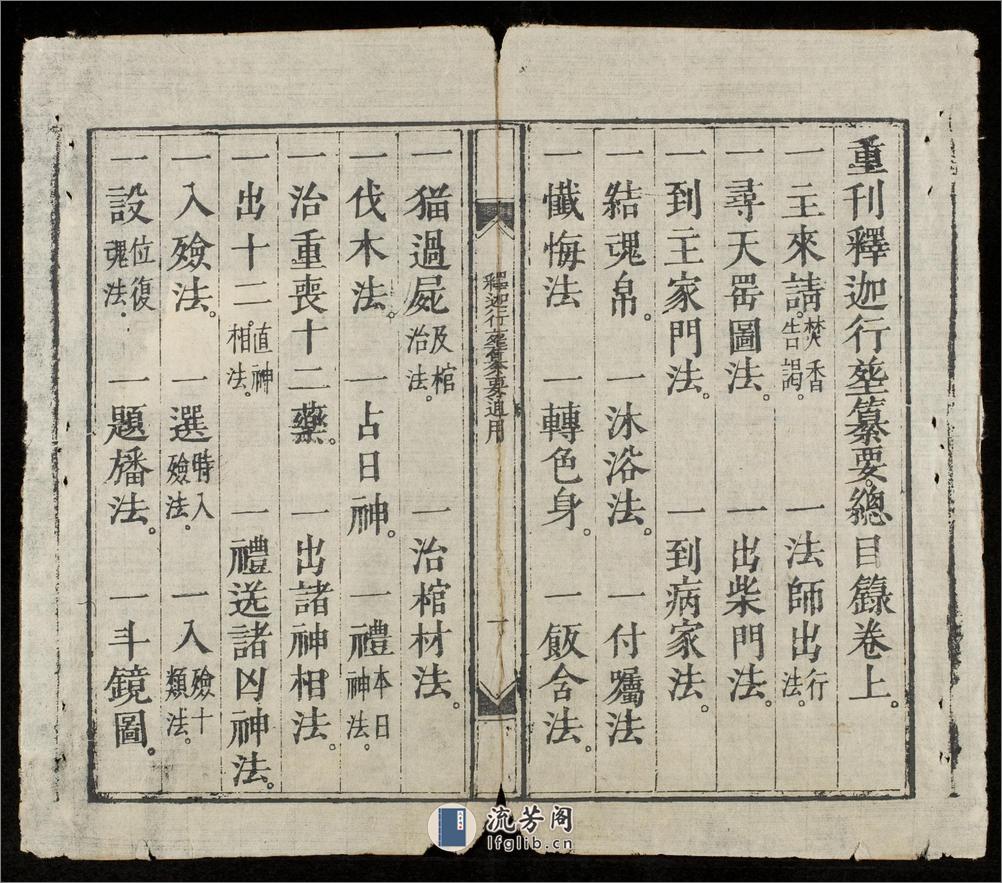 重刊釋迦行塟纂要。總目錄卷上。
一主來請。焚香告謁。 一法師出行法。
一尋天罡圖法。 一出柴門法。
一到主家門法。 一到病家法。
一結魂帛。 一沐浴法。 一付囑法
一懺悔法 一轉色身。 一飯含法。
釋迦行塟纂要通用 一
一猫過屍及棺治法。 一治棺材法。
一伐木法。 一占日神。 一禮本日神法。
一治重喪十二藥。 一出諸神相法。
一出十二。直神相法。 一禮送諸凶神法。
一入殮法。 一選時入殮法。 一入殮十類法。
一設位復魂法。 一題旛法。 一斗鏡圖。
流芳阁
lfglib.cn